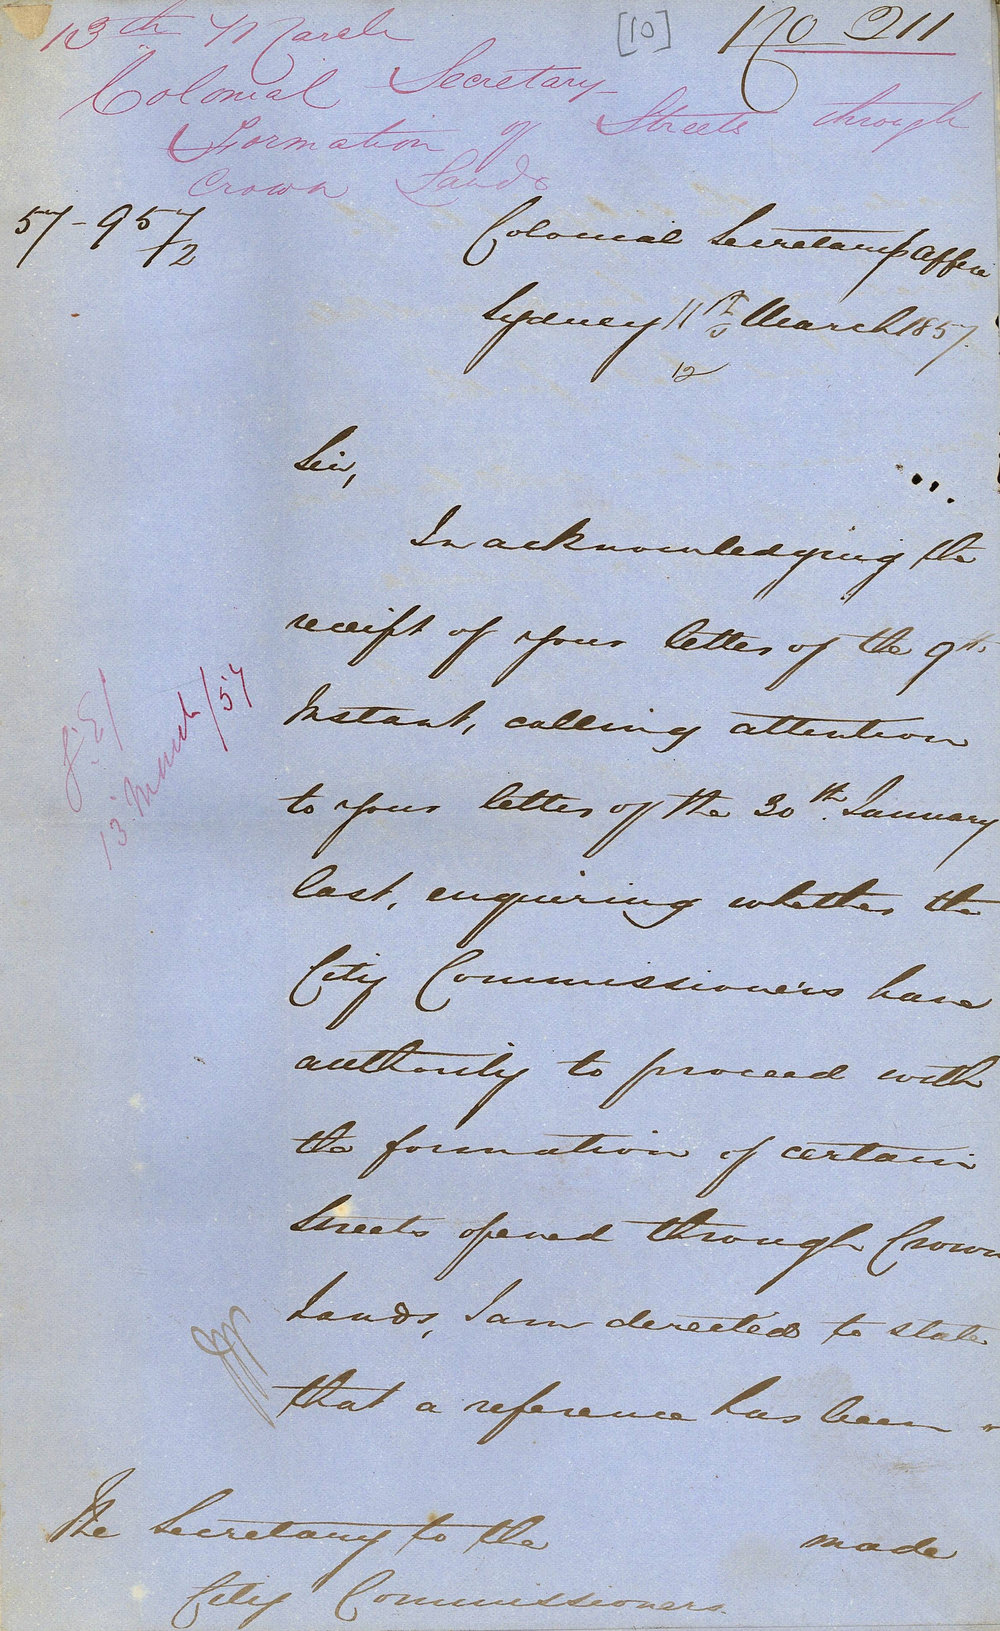 13th March
[10]
No 211
Colonial Secretary
Formation of Streets through
Crown Lands
57-957/2
Colonial Secretarys Office
Sydney 11th March 1857.
12
Sir,
In acknowledging the
receipt of your letter of the 9th
Instant, calling attention
to your letter of the 30th January
last, enquiring whether the
City Commissioners have
authority to proceed with
the formation of certain
Streets opened through Crown
Lands, I am directed to state
that a reference has been
made
13 March/57
The Secretary to the
City Commissioners.